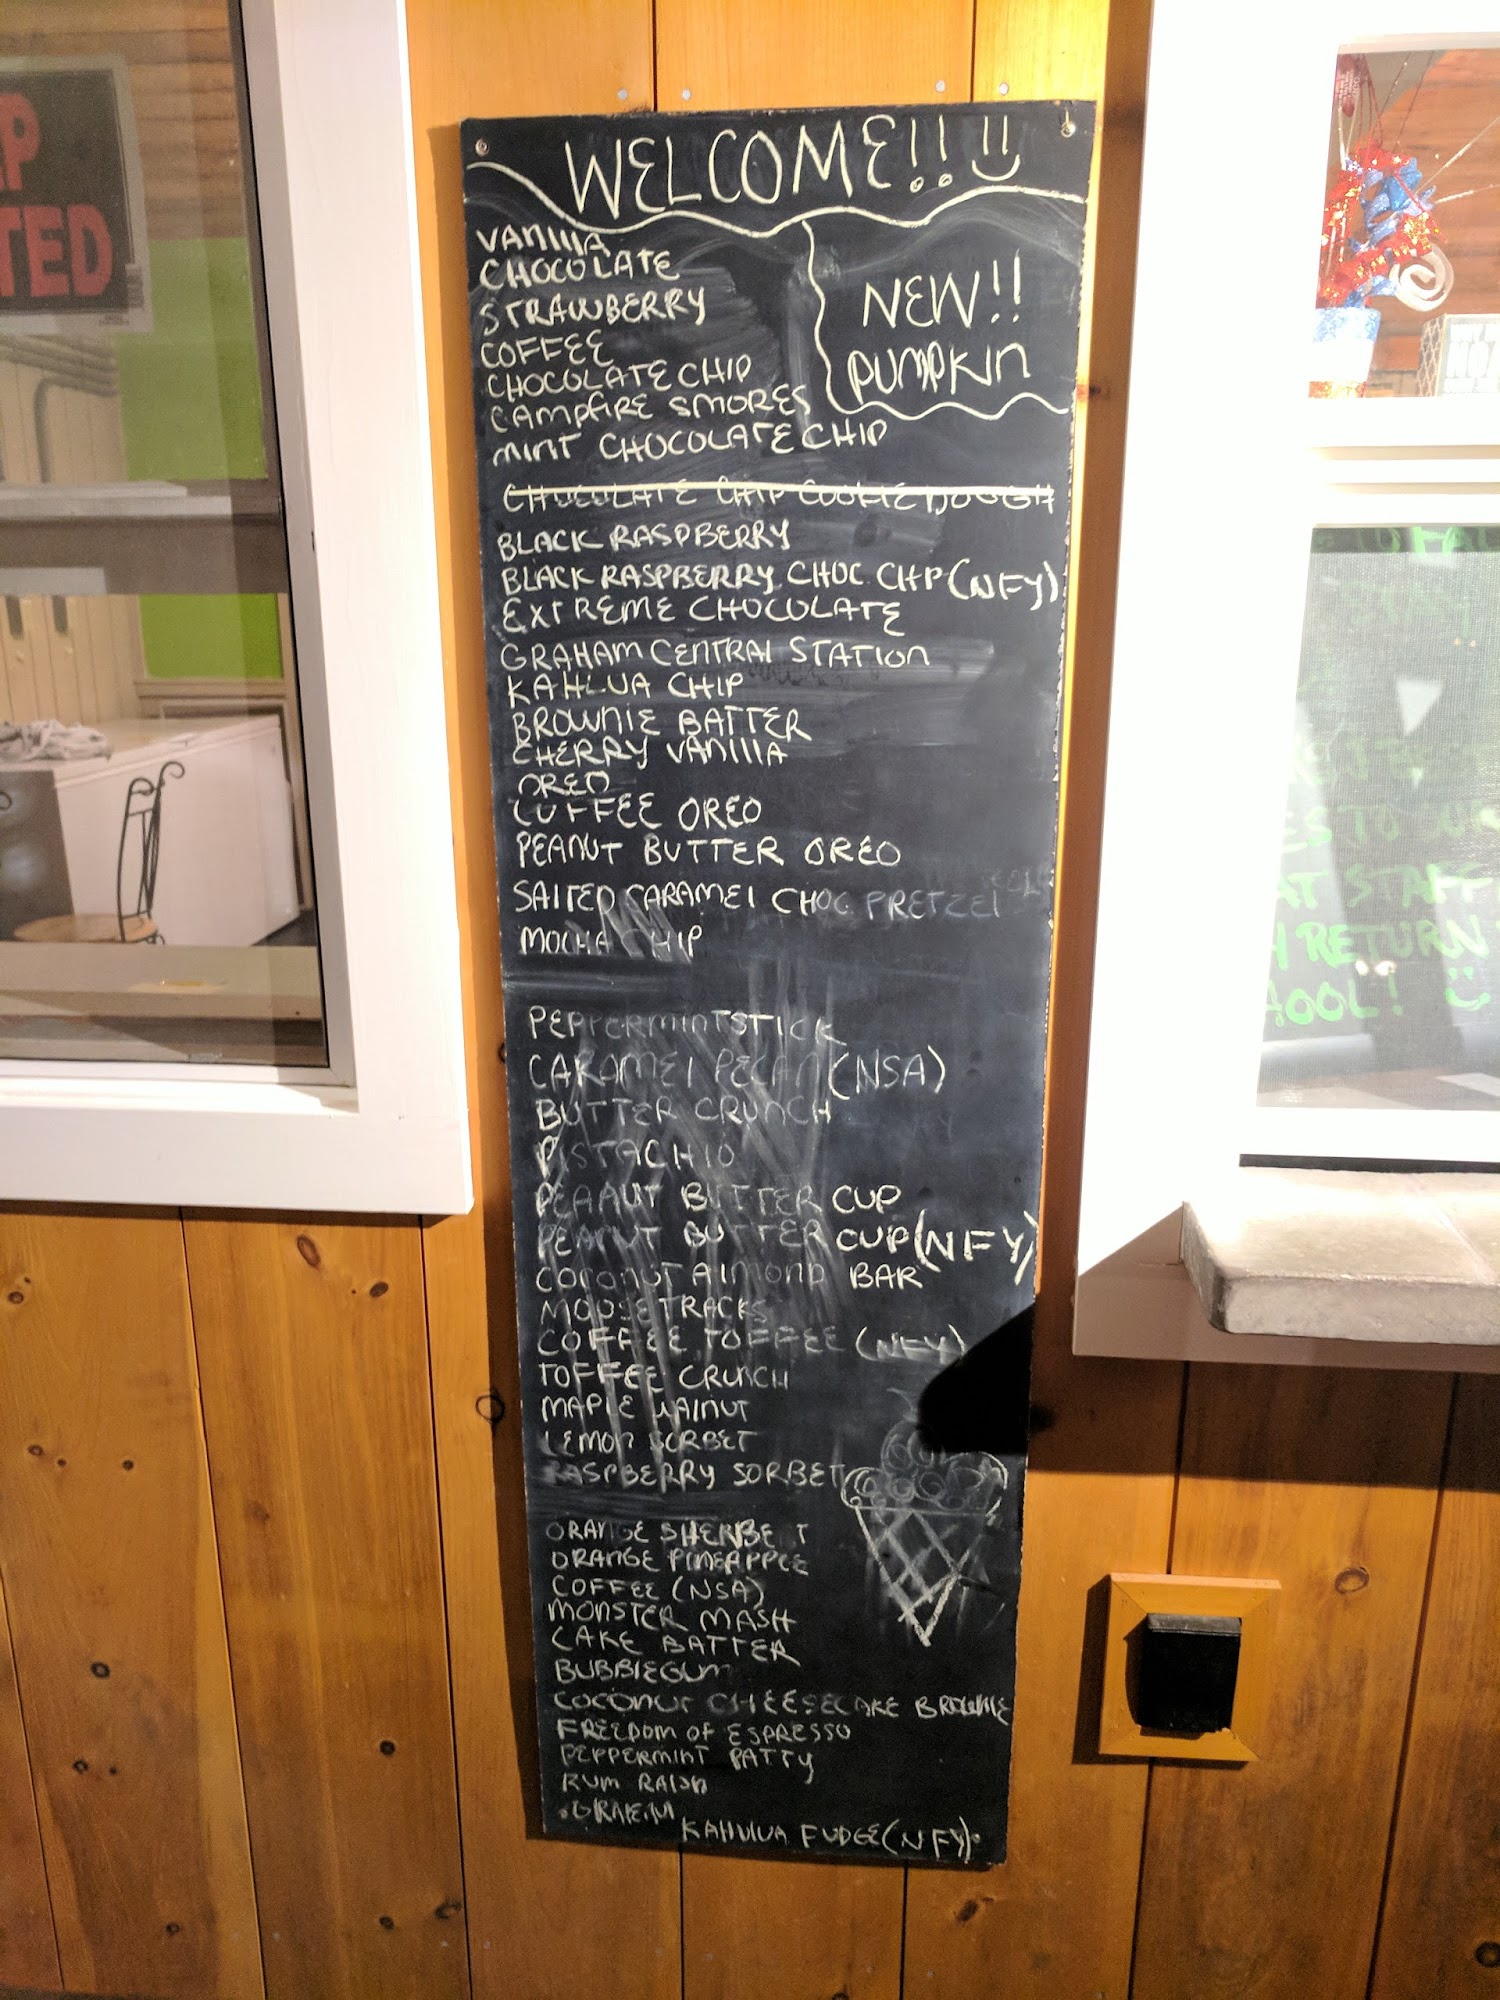 WELCOME!!
NEW!!
PUMPKIN
VANILLA
CHOCOLATE
STRAWBERRY
COFFEE
CHOCOLATE CHIP
CAMPFIRE SMORES
MINT CHOCOLATE CHIP
CHOCOLATE CHIP COOKIE DOUGH
BLACK RASPBERRY
BLACK RASPBERRY CHOC CHP (NFY)
EXTREME CHOCOLATE
GRAHAM CENTRAL STATION
KAHLUA CHIP
BROWNIE BATTER
CHERRY VANILLA
OREO
COFFEE OREO
PEANUT BUTTER OREO
SALTED CARAMEL CHOC PRETZEL
MOCHA CHIP
PEPPERMINT STICK
CARAMEL PECAN (NSA)
BUTTER CRUNCH
PISTACHIO
PEANUT BUTTER CUP
PEANUT BUTTER CUP (NFY)
COCONUT ALMOND BAR
MOOSE TRACKS
COFFEE TOFFEE (NFY)
TOFFEE CRUNCH
MAPLE WALNUT
LEMON SORBET
RASPBERRY SORBET
ORANGE SHERBET
ORANGE PINEAPPLE
COFFEE (NSA)
MONSTER MASH
CAKE BATTER
BUBBLEGUM
COCONUT CHEESECAKE BROWNIE
FREEDOM OF ESPRESSO
PEPPERMINT PATTY
RUM RAISIN
FUDGE (NFY)
TED
AT STAFF
RETURN